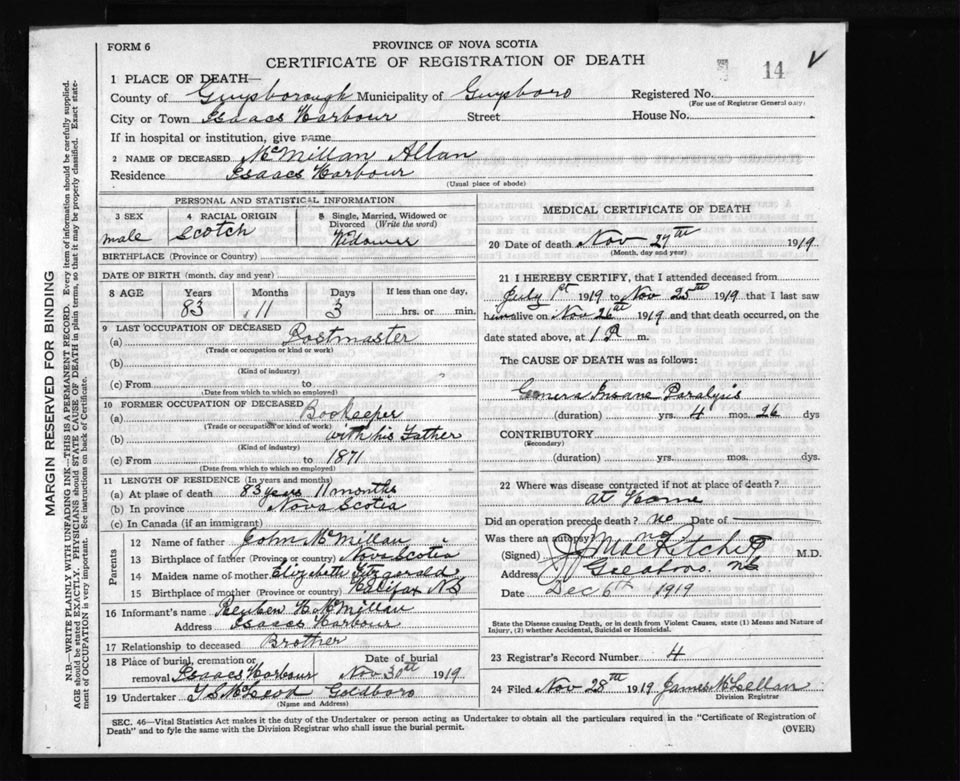 FORM 6
PROVINCE OF NOVA SCOTIA
CERTIFICATE OF REGISTRATION OF DEATH
14
1 PLACE OF DEATH—
County of Guysborough Municipality of Guysboro Registered No.
(For use of Registrar General only)
City or Town Isaacs Harbour Street House No.
If in hospital or institution, give name
2 NAME OF DECEASED McMillan Allan
Residence Isaacs Harbour
(Usual place of abode)
PERSONAL AND STATISTICAL INFORMATION
3 SEX 4 RACIAL ORIGIN 5 Single, Married, Widowed or
Divorced (Write the word)
male Scotch Widower
BIRTHPLACE (Province or Country)
DATE OF BIRTH (month, day and year)
8 AGE Years Months Days If less than one day,
83 11 3 hrs. or min.
9 LAST OCCUPATION OF DECEASED
(a) Postmaster
(Trade or occupation or kind or work)
(b)
(Kind of industry)
(c) From to
(Date from which to which so employed)
10 FORMER OCCUPATION OF DECEASED
(a) Bookeeper
(Trade or occupation or kind of work)
(b) with his Father
(Kind of industry)
(c) From to 1871
(Date from which to which so employed)
11 LENGTH OF RESIDENCE (In years and months)
(a) At place of death 83 years 11 months
(b) In province Nova Scotia
(c) In Canada (if an immigrant)
Parents
12 Name of father John McMillan
13 Birthplace of father (Province or country) Nova Scotia
14 Maiden name of mother Elizabeth Fitzgerald
15 Birthplace of mother (Province or country) Halifax NS
16 Informant's name Reuben H. McMillan
Address Isaacs Harbour
17 Relationship to deceased Brother
18 Place of burial, cremation or removal Isaacs Harbour Date of burial Nov 30th 1919
19 Undertaker McLeod Goldboro
(Name and Address)
MEDICAL CERTIFICATE OF DEATH
20 Date of death Nov 27th 1919
(Month, day and year)
21 I HEREBY CERTIFY, that I attended deceased from
July 1st 1919 to Nov 25th 1919 that I last saw
him alive on Nov 26th 1919 and that death occurred, on the
date stated above, at 1 P m.
The CAUSE OF DEATH was as follows:
Insane Paralysis
(duration) yrs. 4 mos. 26 dys
CONTRIBUTORY
(Secondary)
(duration) yrs. mos. dys.
22 Where was disease contracted if not at place of death?
at Home
Did an operation precede death? no Date of
Was there an autopsy? no
(Signed) M.D.
Address
Date Dec 6th 1919
State the Disease causing Death, or in death from Violent Causes, state (1) Means and Nature of
Injury, (2) whether Accidental, Suicidal or Homicidal.
23 Registrar's Record Number 4
24 Filed Nov 28th 1919 James McLellan
Division Registrar
SEC. 46—Vital Statistics Act makes it the duty of the Undertaker or person acting as Undertaker to obtain all the particulars required in the "Certificate of Registration of
Death" and to fyle the same with the Division Registrar who shall issue the burial permit.
(OVER)
MARGIN RESERVED FOR BINDING
N.B—WRITE PLAINLY WITH UNFADING INK—THIS IS A PERMANENT RECORD. Every item of information should be carefully supplied.
AGE should be stated EXACTLY. PHYSICIANS should STATE CAUSE OF DEATH in plain terms, so that it may be properly classified. Exact state-
ment of OCCUPATION is very important. See instructions on back of Certificate.